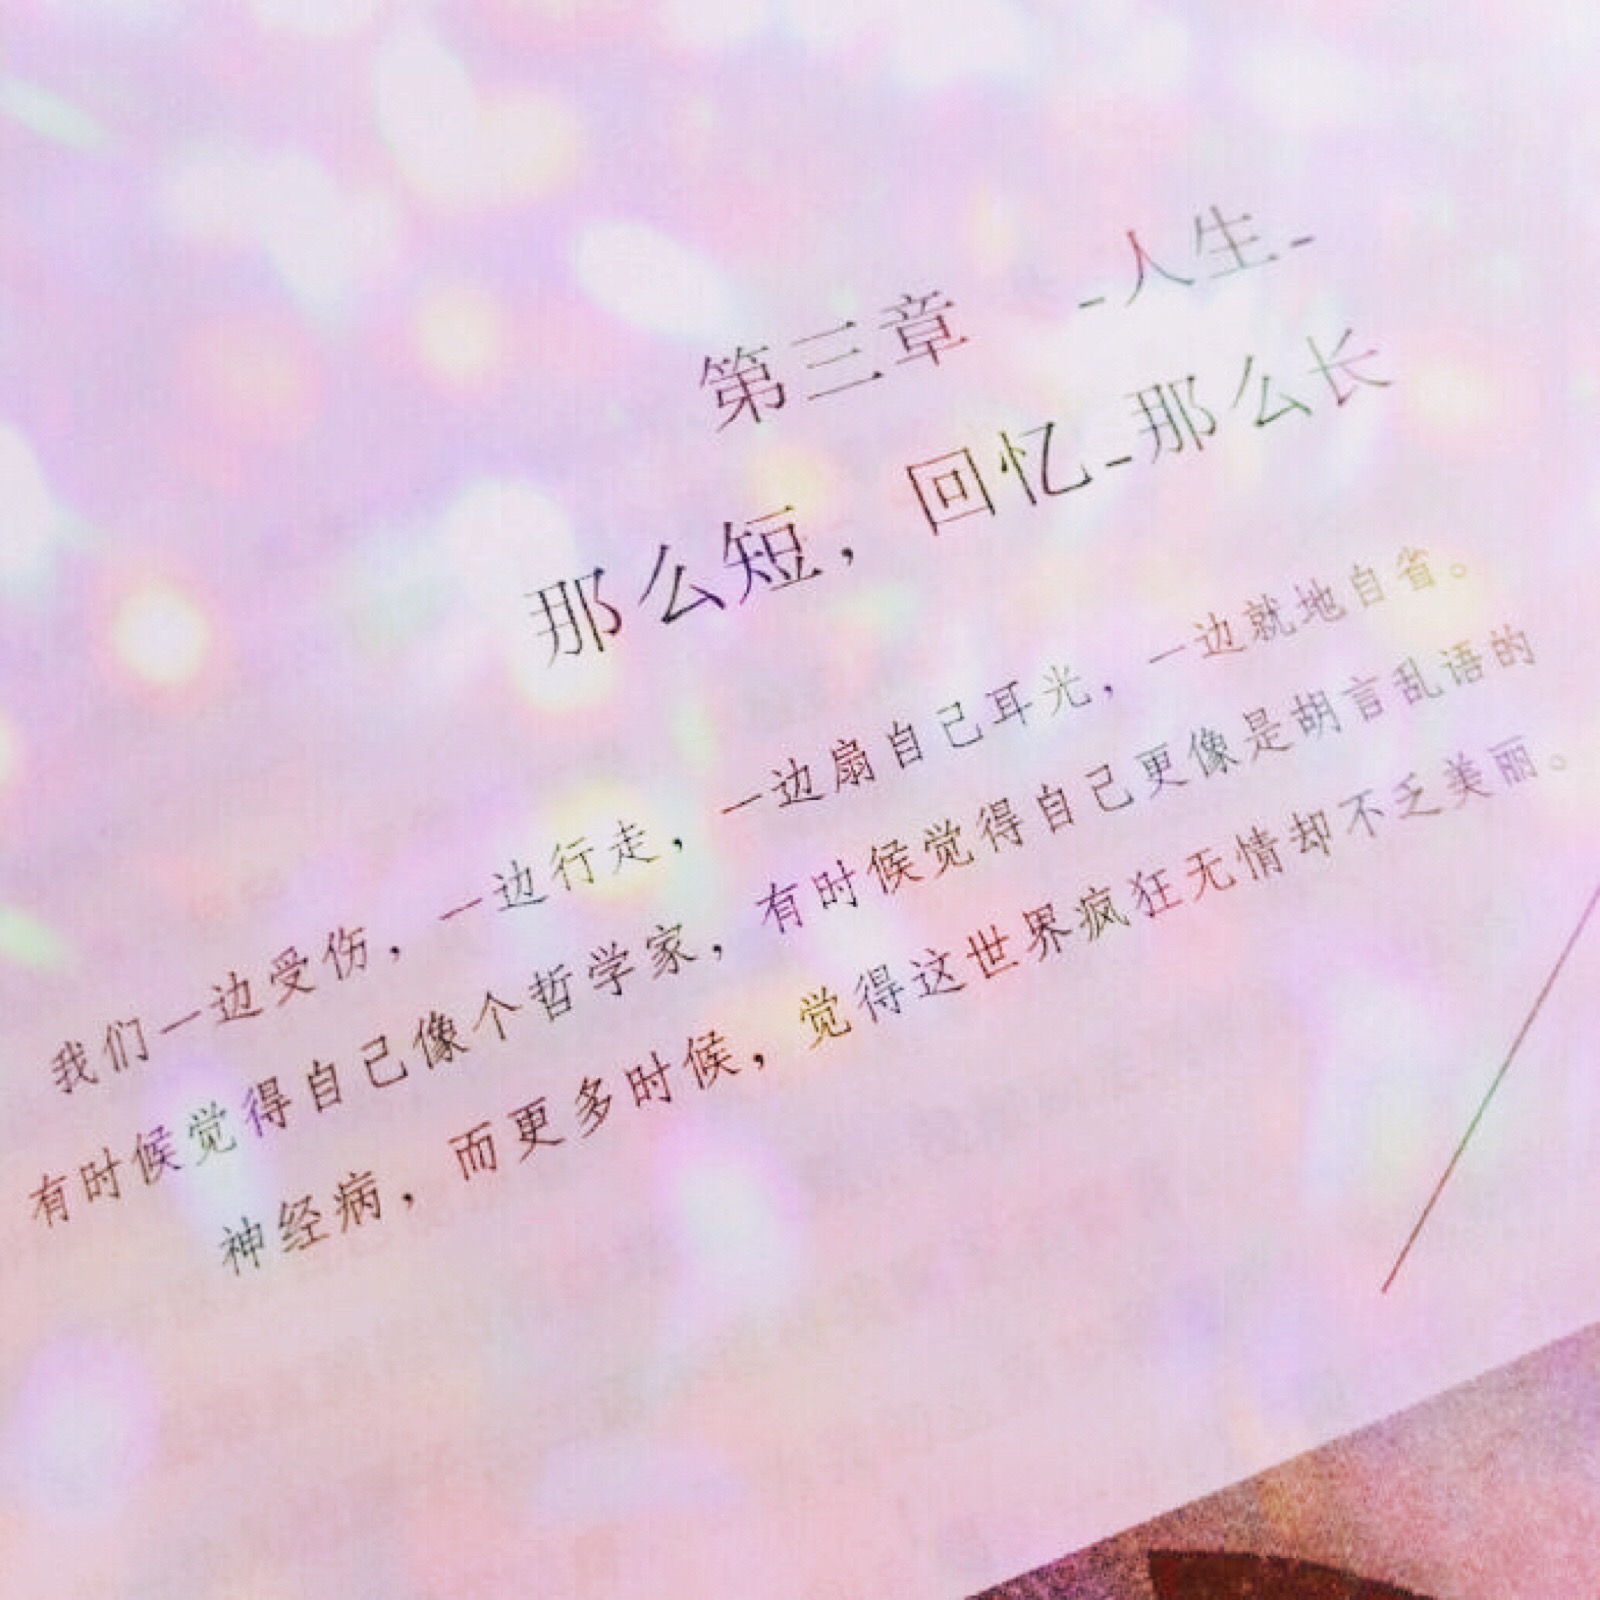 第三章 -人生-
那么短，回忆-那么长
我们一边受伤，一边行走，一边扇自己耳光，一边就地自省。
有时候觉得自己像个哲学家，有时候觉得自己更像是胡言乱语的
神经病，而更多时候，觉得这世界疯狂无情却不乏美丽。